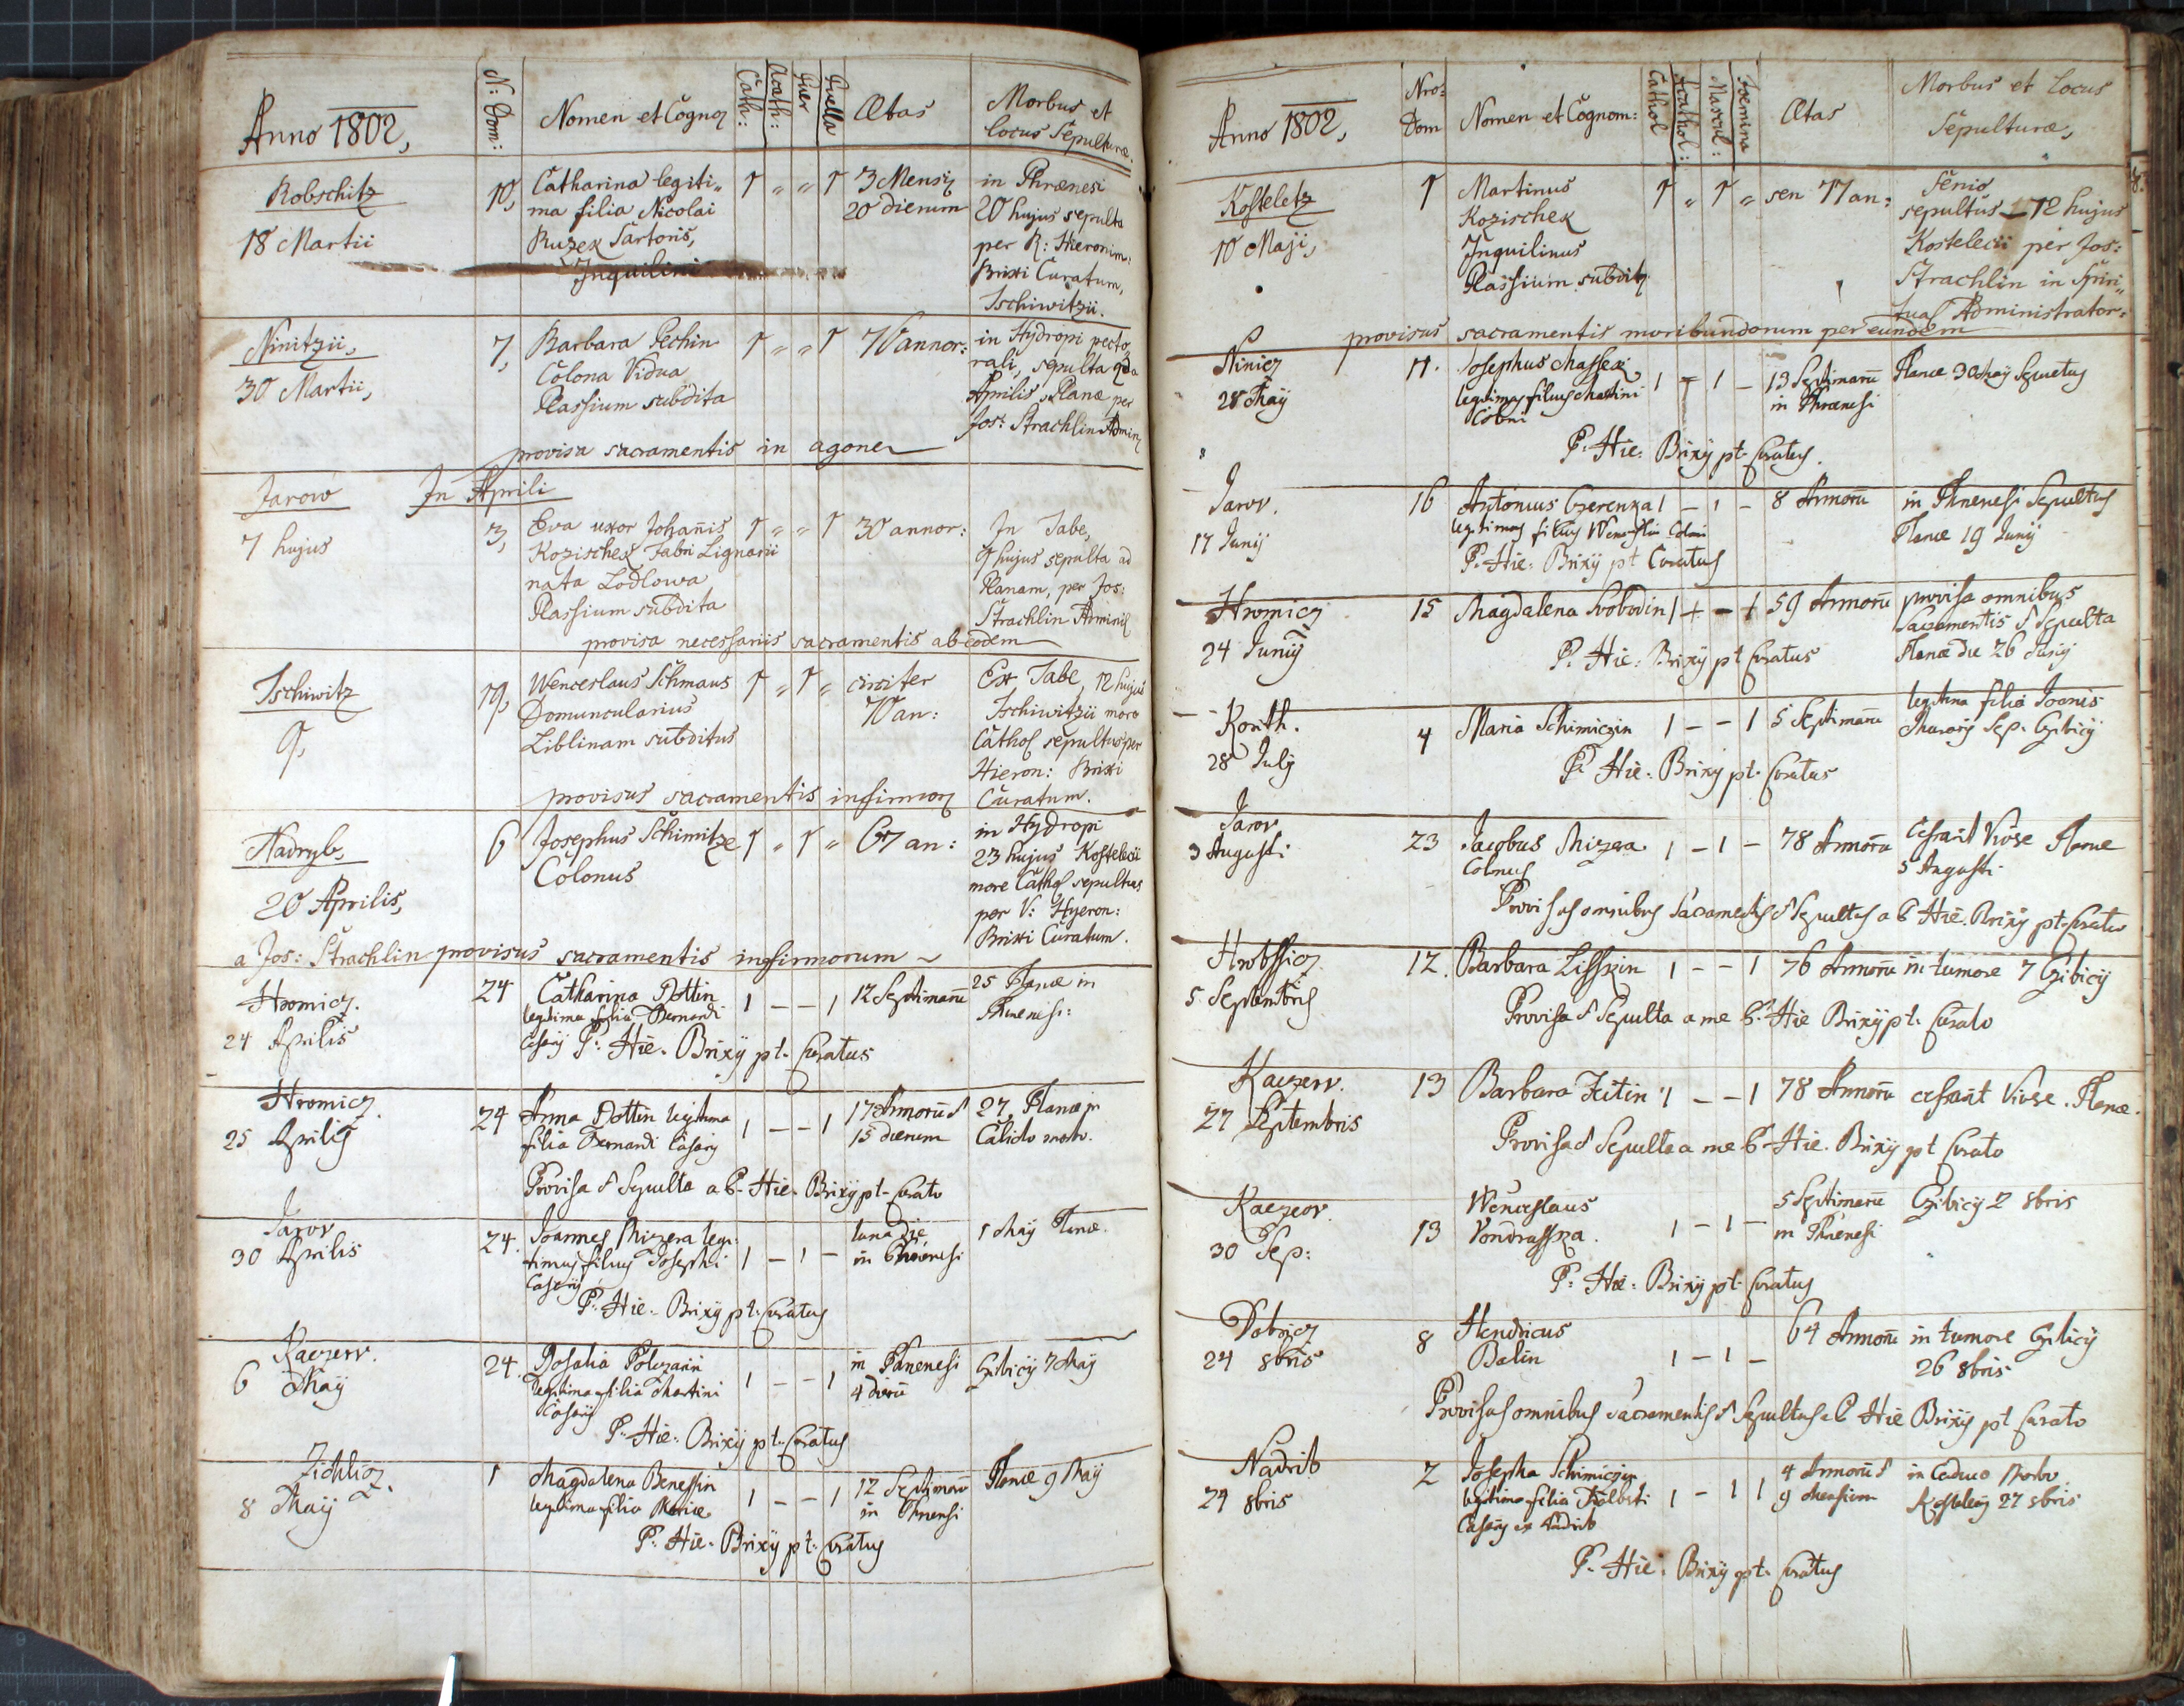 Anno 1802,
N: Dom:
Nomen et Cognoz
Cath:
Acath:
Puer
Puella
Ætas
Morbus et
locus Sepulturæ.
Robschitz
18 Martii
10,
Catharina legiti„
ma filia Nicolai
Ruzek Sartoris,
Inquilini
1 „ „ 1
3 Mensiz
20 dierum
in Phrænesi
20 hujus sepulta
per R: Hieronim:
Brixi Curatum,
Tschiwitzii.
Ninitzii,
30 Martii,
7,
Barbara Pechin
Colona Vidua
Plassium subdita
1 „ „ 1
70 annor:
in Hydropi pecto„
rali, sepulta 2da
Aprilis Planæ per
Jos: Strachlin Admin
provisa sacramentis in agone
In Aprili
Jarow
7 hujus
3,
Eva uxor Johañis
Kozischek Fabri Lignarii
nata Lodlowa
Plassium subdita
1 „ „ 1
30 annor:
In Tabe,
9 hujus sepulta ad
Planam, per Jos:
Strachlin Adminis
provisa necessariis sacramentis ab eodem
Tschiwitz
9,
19,
Wenceslaus Schmaus
Domuncularius
Liblinam subditus
1 „ 1 „
circiter
70 an:
Ex Tabe, 12 hujus
Tschiwitzii more
Cathol sepultus per
Hieron: Brixi
Curatum.
provisus sacramentis infirmoz
Nadryb,
20 Aprilis,
6
Josephus Schimitze
Colonus
1 „ 1 „
67 an:
in Hydropi
23 hujus Kostelecii
more Cathol sepultus
per V: Hyeron:
Brixi Curatum.
a Jos: Strachlin provisus sacramentis infirmorum
Hromicz.
24 Aprilis
24
Catharina Dottin
legitima filia Bernardi
Casarij
1 – – 1
12 Septimanū
25 Planæ in
Phrenesi:
P. Hie. Brixy pt. Curatus
Hromicz.
25 Aprilis
24
Anna Dottin legitima
filia Bernardi Casarij
1 – – 1
17 Annorū &
15 dierum
27, Planæ in
Calido morbo.
Provisa & Sepulta a P. Hie. Brixy pt. Curato
Jarov
30 Aprilis
24.
Joannes Mizera legi:
timus filius Josephi
Casarij
1 – 1 –
una die
in Phrenesi
1 Maÿ Planæ.
P. Hie. Brixy pt. Curatus
Kaczerr.
6 Maÿ
24.
Rosalia Polczarin
legitima filia Martini
Casarij
1 – – 1
in Phrenesi
4 dierū
Czibicij 7 Maÿ
P. Hie. Brixy pt. Curatus
Zichlicz.
8 Maÿ
1
Magdalena Benessin
legitima filia Mariæ
1 – – 1
12 Septimanū
in Phrenesi
Planæ 9 Maÿ
P. Hie. Brixy pt. Curatus
Anno 1802,
Nro:
Dom
Nomen et Cognom:
Cathol
Acathol:
Mascul:
Foemina
Ætas
Morbus et Locus
Sepulturæ,
Kosteletz
10 Maji,
1
Martinus
Kozischek
Inquilinus
Plassium subditz
1 „ 1 „
sen 77 an:
Senio
sepultus 12 hujus
Kostelecii per Jos:
Strachlin in Spiri„
tual Administrator:
provisus sacramentis moribundorum per eundem
Ninicz
28 Maÿ
11.
Josephus Massek
legitimus filius Martini
Coloni
1 – 1 –
13 Septimanū
in Phrænesi
Planæ 30 Maÿ Sepultus
P. Hie. Brixy pt. Curatus.
Jarov.
17 Junij
16
Antonius Czerenka
legitimus filius Wenceslai Coloni
1 – 1 –
8 Annorū
in Phrenesi Sepultus
Planæ 19 Junij
P. Hie: Brixy pt Curatus
Hromicz
24 Junij
15
Magdalena Svobodin
1 – – 1
59 Annorū
provisa omnibus
Sacramentis & Sepulta
Planæ die 26 Junij
P. Hie: Brixy pt Curatus
Korith.
28 Julij
4
Maria Schimiczin
1 – – 1
5 Septimanū
legitima filia Joanis
Murarij Sep. Czibicij
P. Hie. Brixy pt. Curatus
Jarov
3 Augusti
23
Jacobus Mizera
Colonus
1 – 1 –
78 Annorū
Cessavit Vivere Planæ
5 Augusti
Provisus omnibus Sacramentis & Sepultus a P. Hie. Brixy pt. Curato
Hrobssicz
5 Septembris
12.
Barbara Lisskin
1 – – 1
76 Annorū
in tumore 7 Czibicij
Provisa & Sepulta a me P. Hie Brixy pt. Curato
Kaczerr.
27 Septembris
13
Barbara Zitin
1 – – 1
78 Annorū
cessavit Vivere. Planæ.
Provisa & Sepulta a me P. Hie. Brixy pt Curato
Kaczeor.
30 Sep:
13
Wenceslaus
Vondrasska.
1 – 1 –
5 Septimanū
in Phrenesi
Czibicij 2 8bris
P. Hie: Brixy pt. Curatus
Dobricz
24 8bris
8
Hendricus
Balin
1 – 1 –
64 Annorū
in tumore Czibicij
26 8bris
Provisus omnibus Sacramentis & Sepultus a P. Hie Brixy pt Curato
Nadrib
24 8bris
2
Josepha Schimiczin
legitima filia Adalberti
Casarij ex Nadrib
1 – 1 1
4 Annorū &
9 Mensium
in Caduco Morbo
Kostelecij 27 8bris
P. Hie. Brixy pt. Curatus